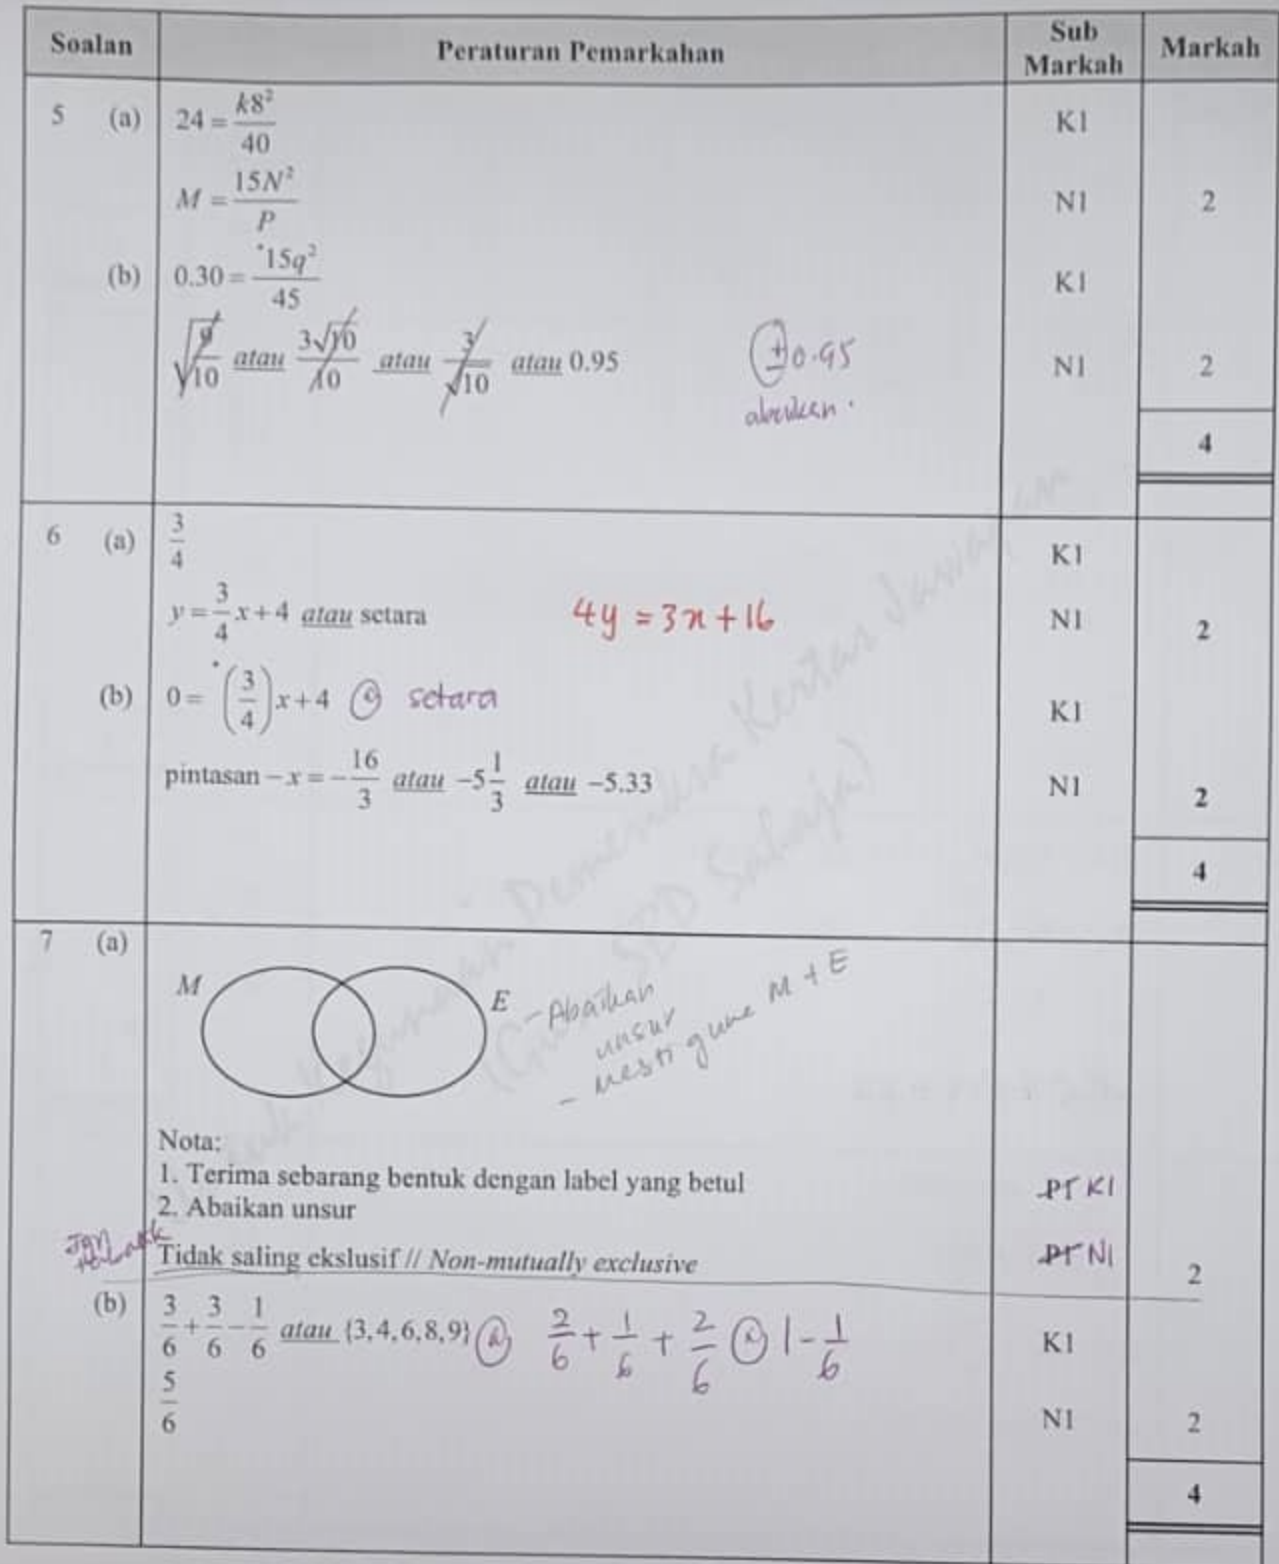 Soalan Peraturan Pemarkahan Sub Markah Markah
5 (a) 24 = k8²/40 K1
M = 15N²/P N1 2
(b) 0.30 = *15q²/45 K1
√(9/10) atau 3√10/10 atau 3/√10 atau 0.95 ±0.95 N1 2
abaikan.
4
6 (a) 3/4 K1
y = 3/4 x + 4 atau setara 4y = 3x + 16 N1 2
(b) 0 = *(3/4)x + 4 @ setara K1
pintasan – x = –16/3 atau –5 1/3 atau –5.33 N1 2
4
7 (a)
M E
- Abaikan
unsur
- mesti guna M + E
Nota:
1. Terima sebarang bentuk dengan label yang betul P1 K1
2. Abaikan unsur
Tidak saling ekslusif // Non-mutually exclusive P1 N1 2
(b) 3/6 + 3/6 – 1/6 atau {3,4,6,8,9} @ 2/6 + 1/6 + 2/6 @ 1 - 1/6 K1
5/6 N1 2
4
Kegunaan Pemeriksa Kertas Jawapan
Sahaja)